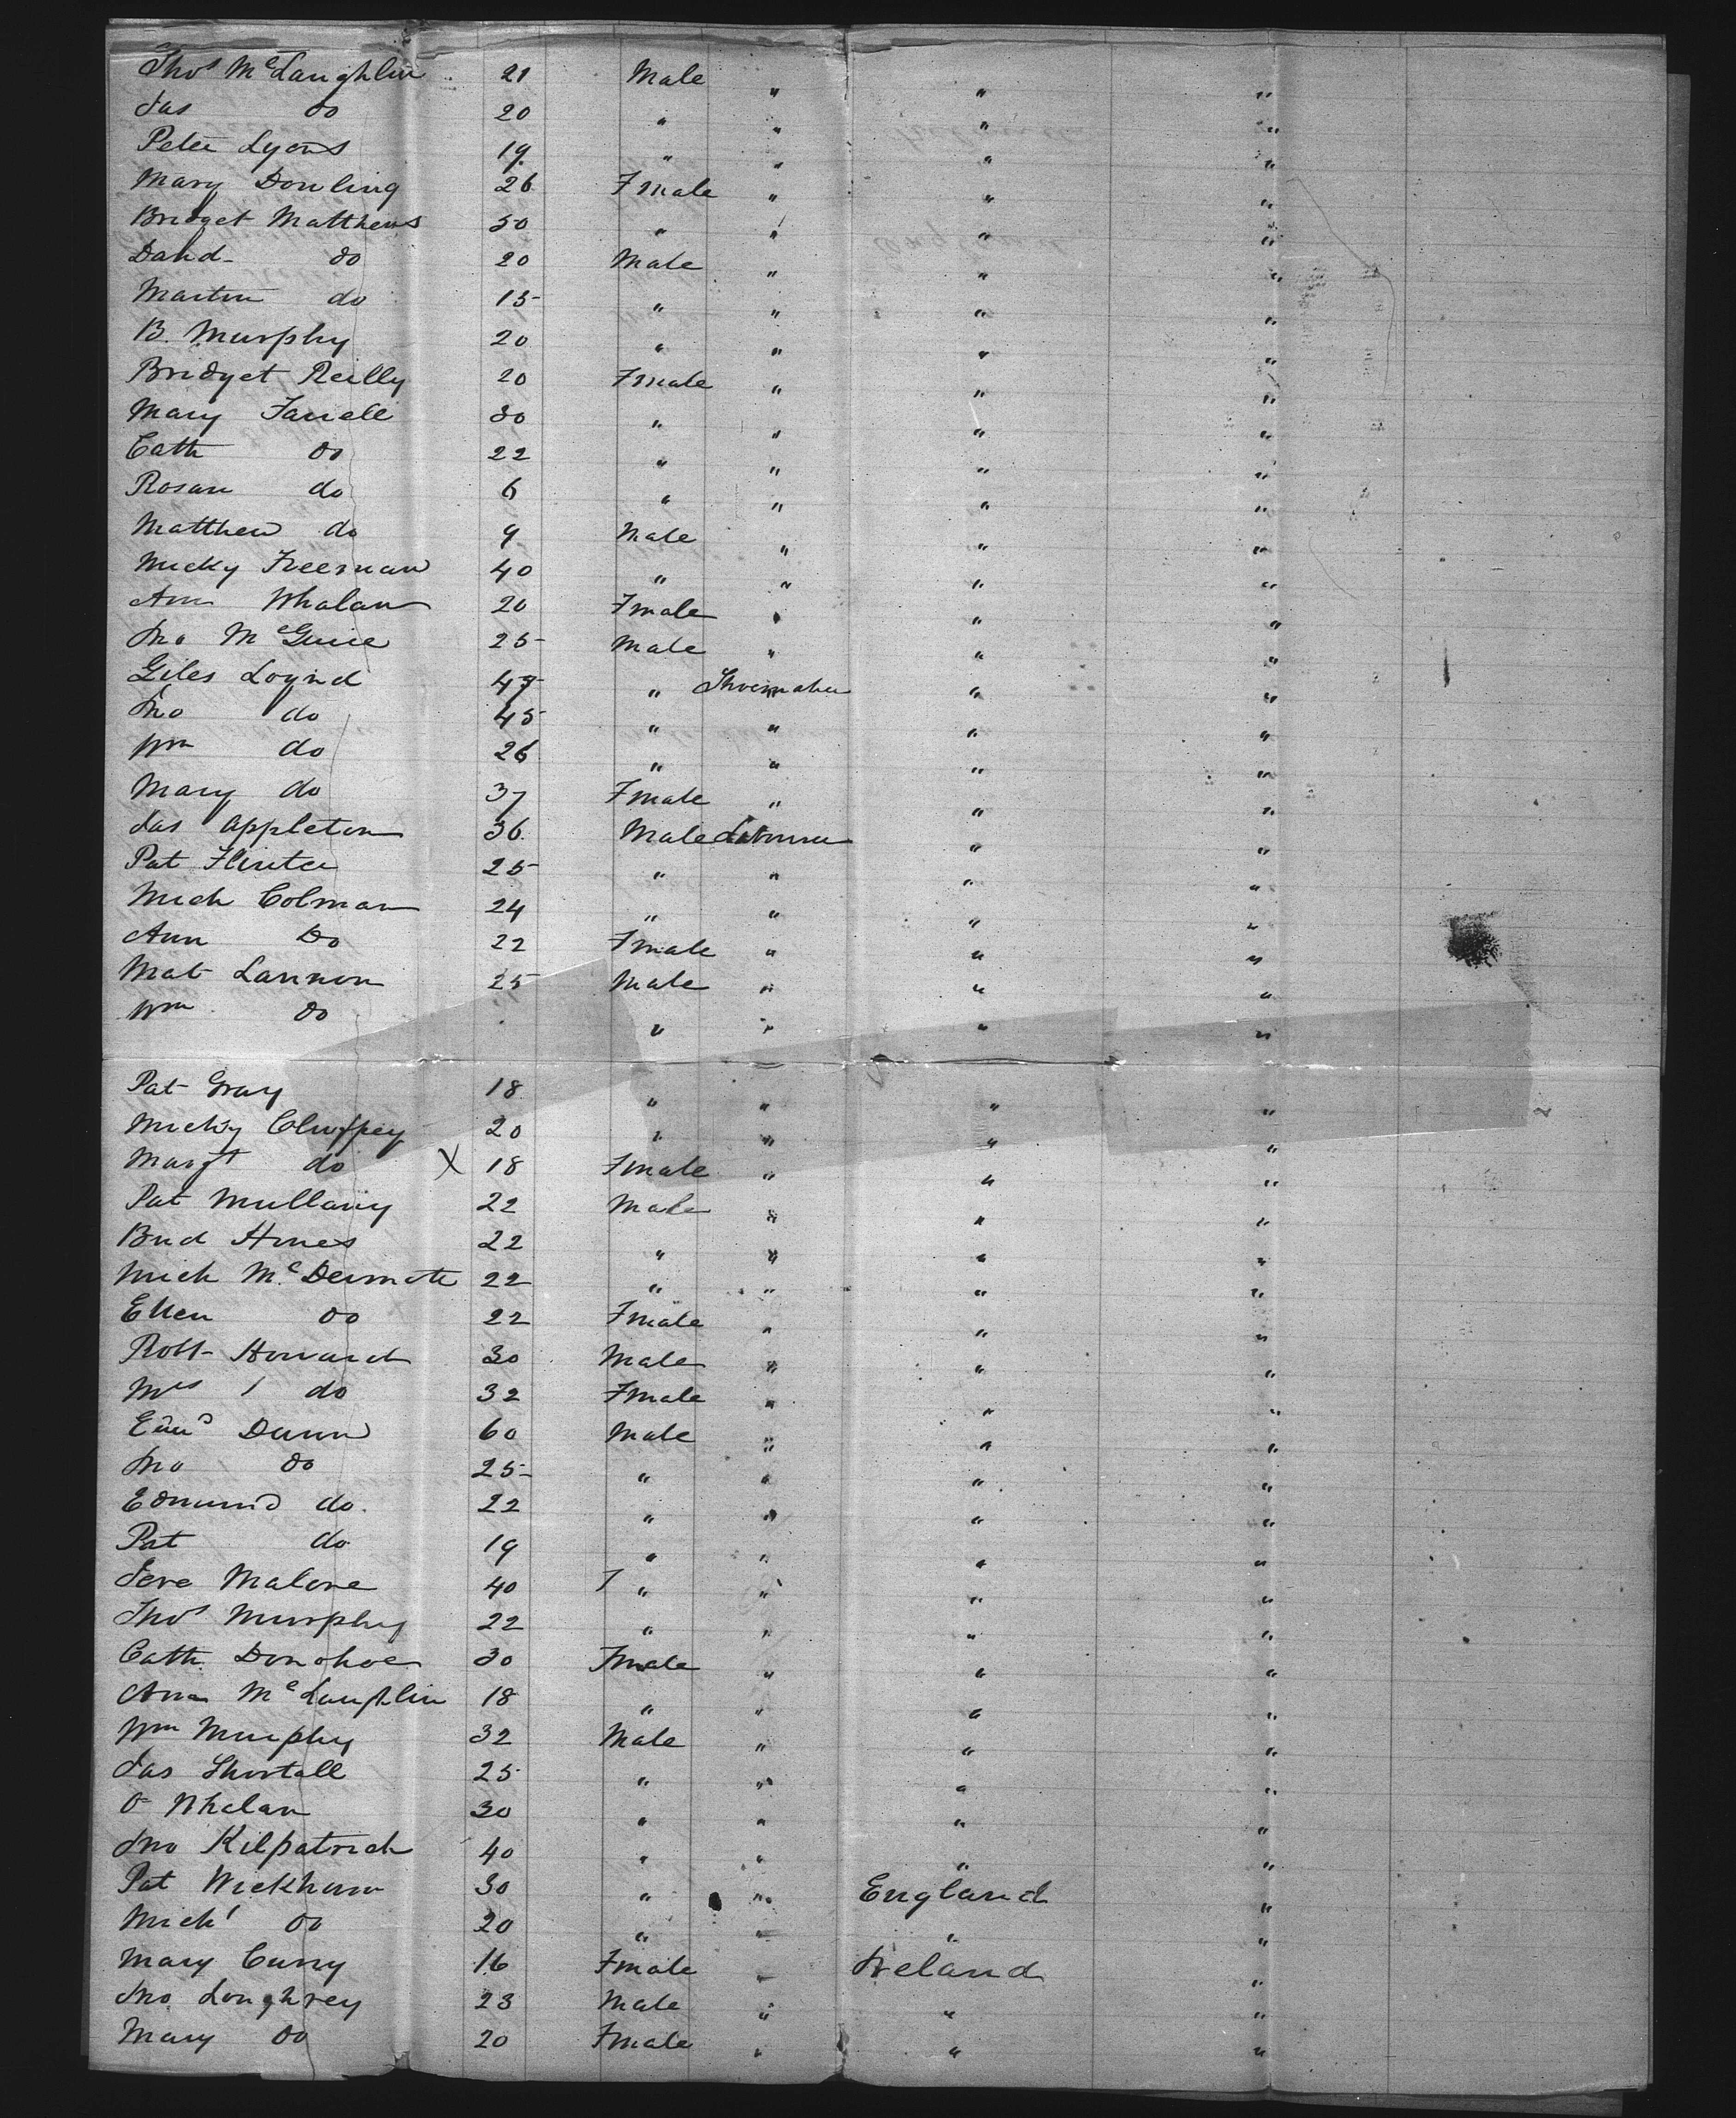 Thos McLaughlin 21 Male " " "
Jas do 20 " " " "
Peter Lyons 19 " " " "
Mary Dowling 26 Fmale " " "
Bridget Matthews 50 " " " "
David do 20 Male " " "
Martin do 15 " " " "
B. Murphy 20 " " " "
Bridget Reilly 20 Fmale " " "
Mary Farrell 30 " " " "
Cath do 22 " " " "
Rosan do 6 " " " "
Matthew do 9 Male " " "
Micky Freeman 40 " " " "
Ann Whalan 20 Fmale " " "
Jno McGuire 25 Male " " "
Giles Loynd 47 " Shoemaker " "
Jno do 45 " " " "
Wm do 26 " " " "
Mary do 37 Fmale " " "
Jas Appleton 36 Male " "
Pat 25 " " " "
Mich Colman 24 " " " "
Ann Do 22 Fmale " " "
Mat Lannon 25 Male " " "
Wm do " " " "
Pat Gray 18 " " " "
Micky 20 " " " "
Margt do X 18 Fmale " " "
Pat Mullany 22 Male " " "
Brid Hines 22 " " " "
Mich McDermott 22 " " " "
Ellen do 22 Fmale " " "
Robt Howard 30 Male " " "
Mrs do 32 Fmale " " "
Edmd Dunn 60 Male " " "
Jno do 25 " " " "
Edmund do. 22 " " " "
Pat do 19 " " " "
Jere Malone 40 " " " "
Thos Murphy 22 " " " "
Cath. Donohoe 30 Fmale " " "
Ann McLaughlin 18 " " " "
Wm Murphy 32 Male " " "
Jas Shortall 25 " " " "
Whelan 30 " " " "
Jno Kilpatrick 40 " " " "
Pat Wickham 30 " " England "
Mich' do 20 " " " "
Mary Curry 16 Fmale " Ireland "
Jno Loughrey 23 Male " " "
Mary do 20 Fmale " " "